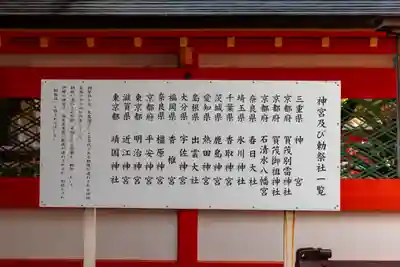 神宮及び勅祭社一覧
三重県 神宮
京都府 賀茂別雷神社
京都府 賀茂御祖神社
京都府 石清水八幡宮
奈良県 春日大社
埼玉県 氷川神社
千葉県 香取神宮
茨城県 鹿島神宮
愛知県 熱田神宮
島根県 出雲大社
大分県 宇佐神宮
福岡県 香椎宮
奈良県 橿原神宮
京都府 平安神宮
東京都 明治神宮
滋賀県 近江神宮
東京都 靖国神社